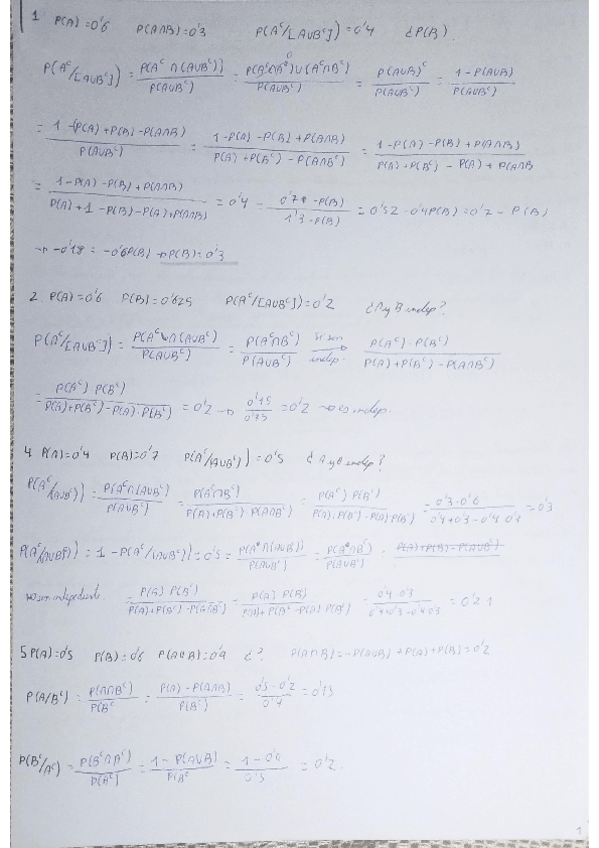 1 P(A)=0'6 P(A∩B)=0'3 P(A^c/[A∪B^c])=0'4 ¿P(B)
P(A^c/[A∪B^c]) = P(A^c∩(A∪B^c))/P(A∪B^c) = P(A^c∩B^c)∪(A^c∩B^c)/P(A∪B^c) = P(A∪B)^c/P(A∪B^c) = 1-P(A∪B)/P(A∪B^c)
= 1-(P(A)+P(B)-P(A∩B)/P(A∪B^c) = 1-P(A)-P(B)+P(A∩B)/P(A)+P(B^c)-P(A∩B^c) = 1-P(A)-P(B)+P(A∩B)/P(A)+P(B^c)-P(A)+P(A∩B
= 1-P(A)-P(B)+P(A∩B)/P(A)+1-P(B)-P(A)+P(A∩B) = 0'4 = 0'7-P(B)/1'3-P(B) = 0'52-0'4P(B)=0'7-P(B)
→ -0'18 = -0'6P(B) → P(B)=0'3
2 P(A)=0'6 P(B)=0'625 P(A^c/[A∪B^c])=0'2 ¿A y B indep?
P(A^c/[A∪B^c]) = P(A^c∩(A∪B^c)/P(A∪B^c) = P(A^c∩B^c)/P(A∪B^c) si son indep. → P(A^c)·P(B^c)/P(A)+P(B^c)-P(A∩B^c)
= P(A^c) P(B^c)/P(A)+P(B^c)-P(A)·P(B^c) = 0'2 → 0'15/0'75 = 0'2 → es indep.
4 P(A)=0'4 P(B)=0'7 P(A^c/(A∪B^c))=0'5 ¿A y B indep?
P(A^c/(A∪B^c)) = P(A^c∩(A∪B^c)/P(A∪B^c) = P(A^c∩B^c)/P(A)+P(B^c)-P(A∩B^c) = P(A^c) P(B^c)/P(A)+P(B^c)-P(A)P(B^c) = 0'3·0'6/0'4+0'3-0'4·0'3 = 0'3
P(A^c/(A∪B^c)) = 1-P(A^c/(A∪B^c))=0'5=
no son independiente = P(A) P(B^c)/P(A)+P(B^c)-P(A∩B^c) = P(A) P(B^c)/P(A)+P(B^c)-P(A) P(B^c) = 0'4·0'3/0'4+0'3-0'4·0'3 = 0'21
5 P(A)=0'5 P(B)=0'6 P(A∪B)=0'9 ¿? P(A∩B)=-P(A∪B)+P(A)+P(B)=0'2
P(A/B^c) = P(A∩B^c)/P(B^c = P(A)-P(A∩B)/P(B^c) = 0'5-0'2/0'4 = 0'75
P(B^c/A^c) = P(B^c∩A^c)/P(A^c) = 1-P(A∪B)/P(A^c = 1-0'9/0'5 = 0'2
1